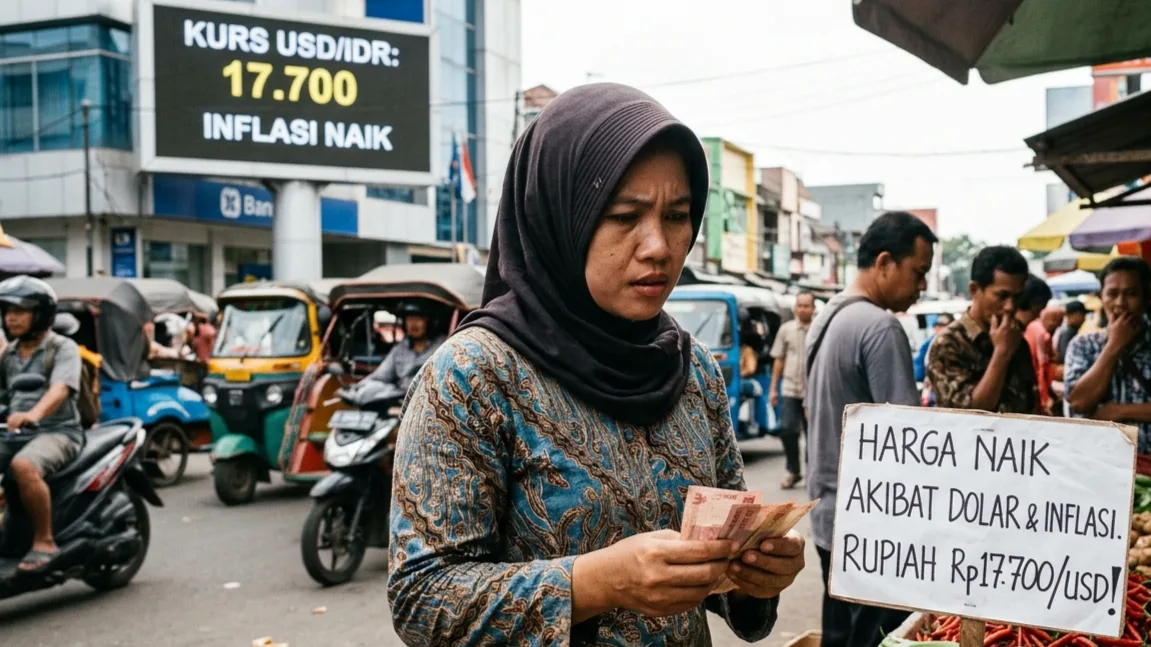 KURS USD/IDR:
17.700
INFLASI NAIK
Ban
HARGA NAIK
AKIBAT DOLAR & INFLASI.
RUPIAH Rp17.700/USD!